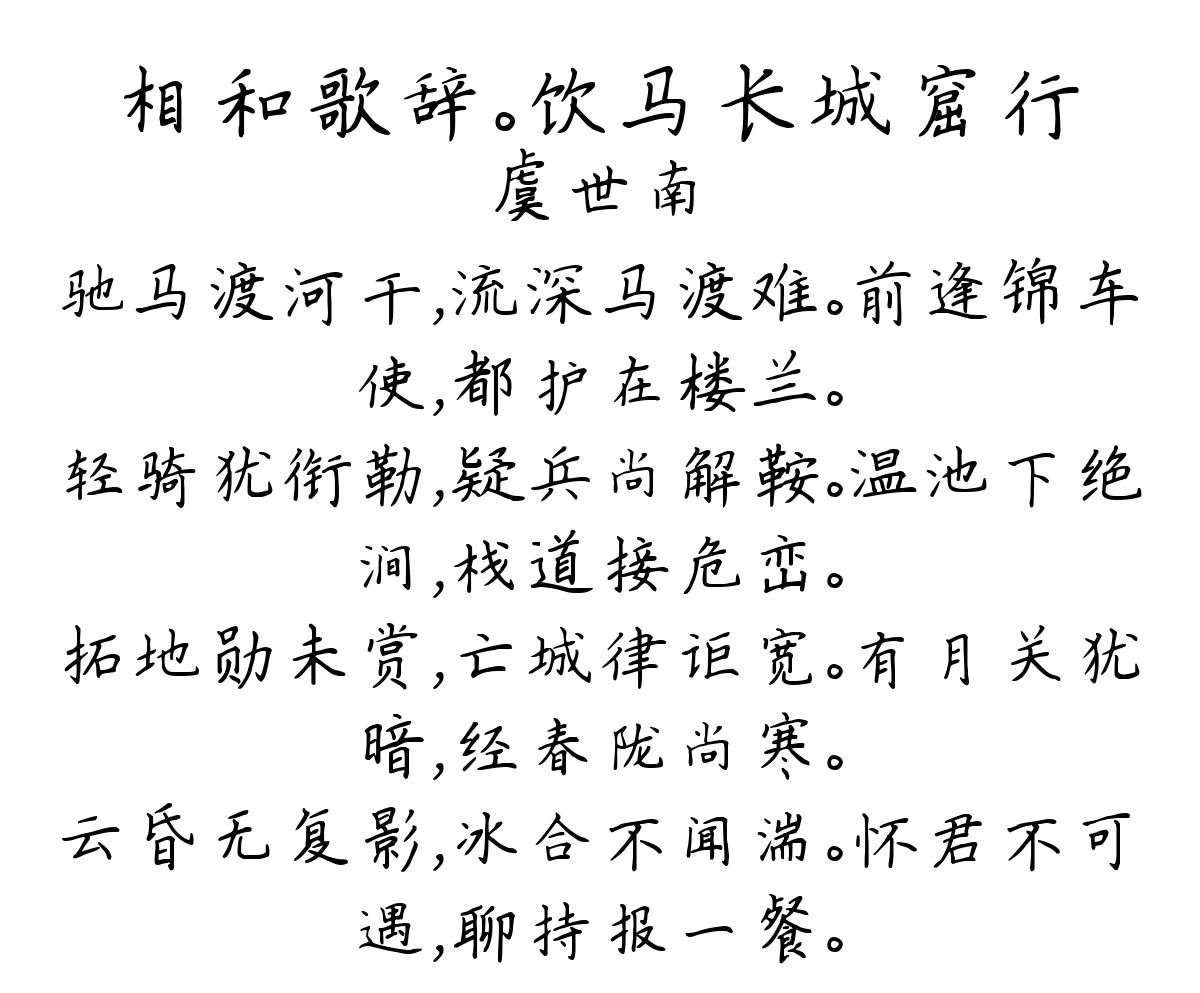 相和歌辞。饮马长城窟行
虞世南
驰马渡河干,流深马渡难。前逢锦车
使,都护在楼兰。
轻骑犹衔勒,疑兵尚解鞍。温池下绝
涧,栈道接危峦。
拓地勋未赏,亡城律讵宽。有月关犹
暗,经春陇尚寒。
云昏无复影,冰合不闻湍。怀君不可
遇,聊持报一餐。